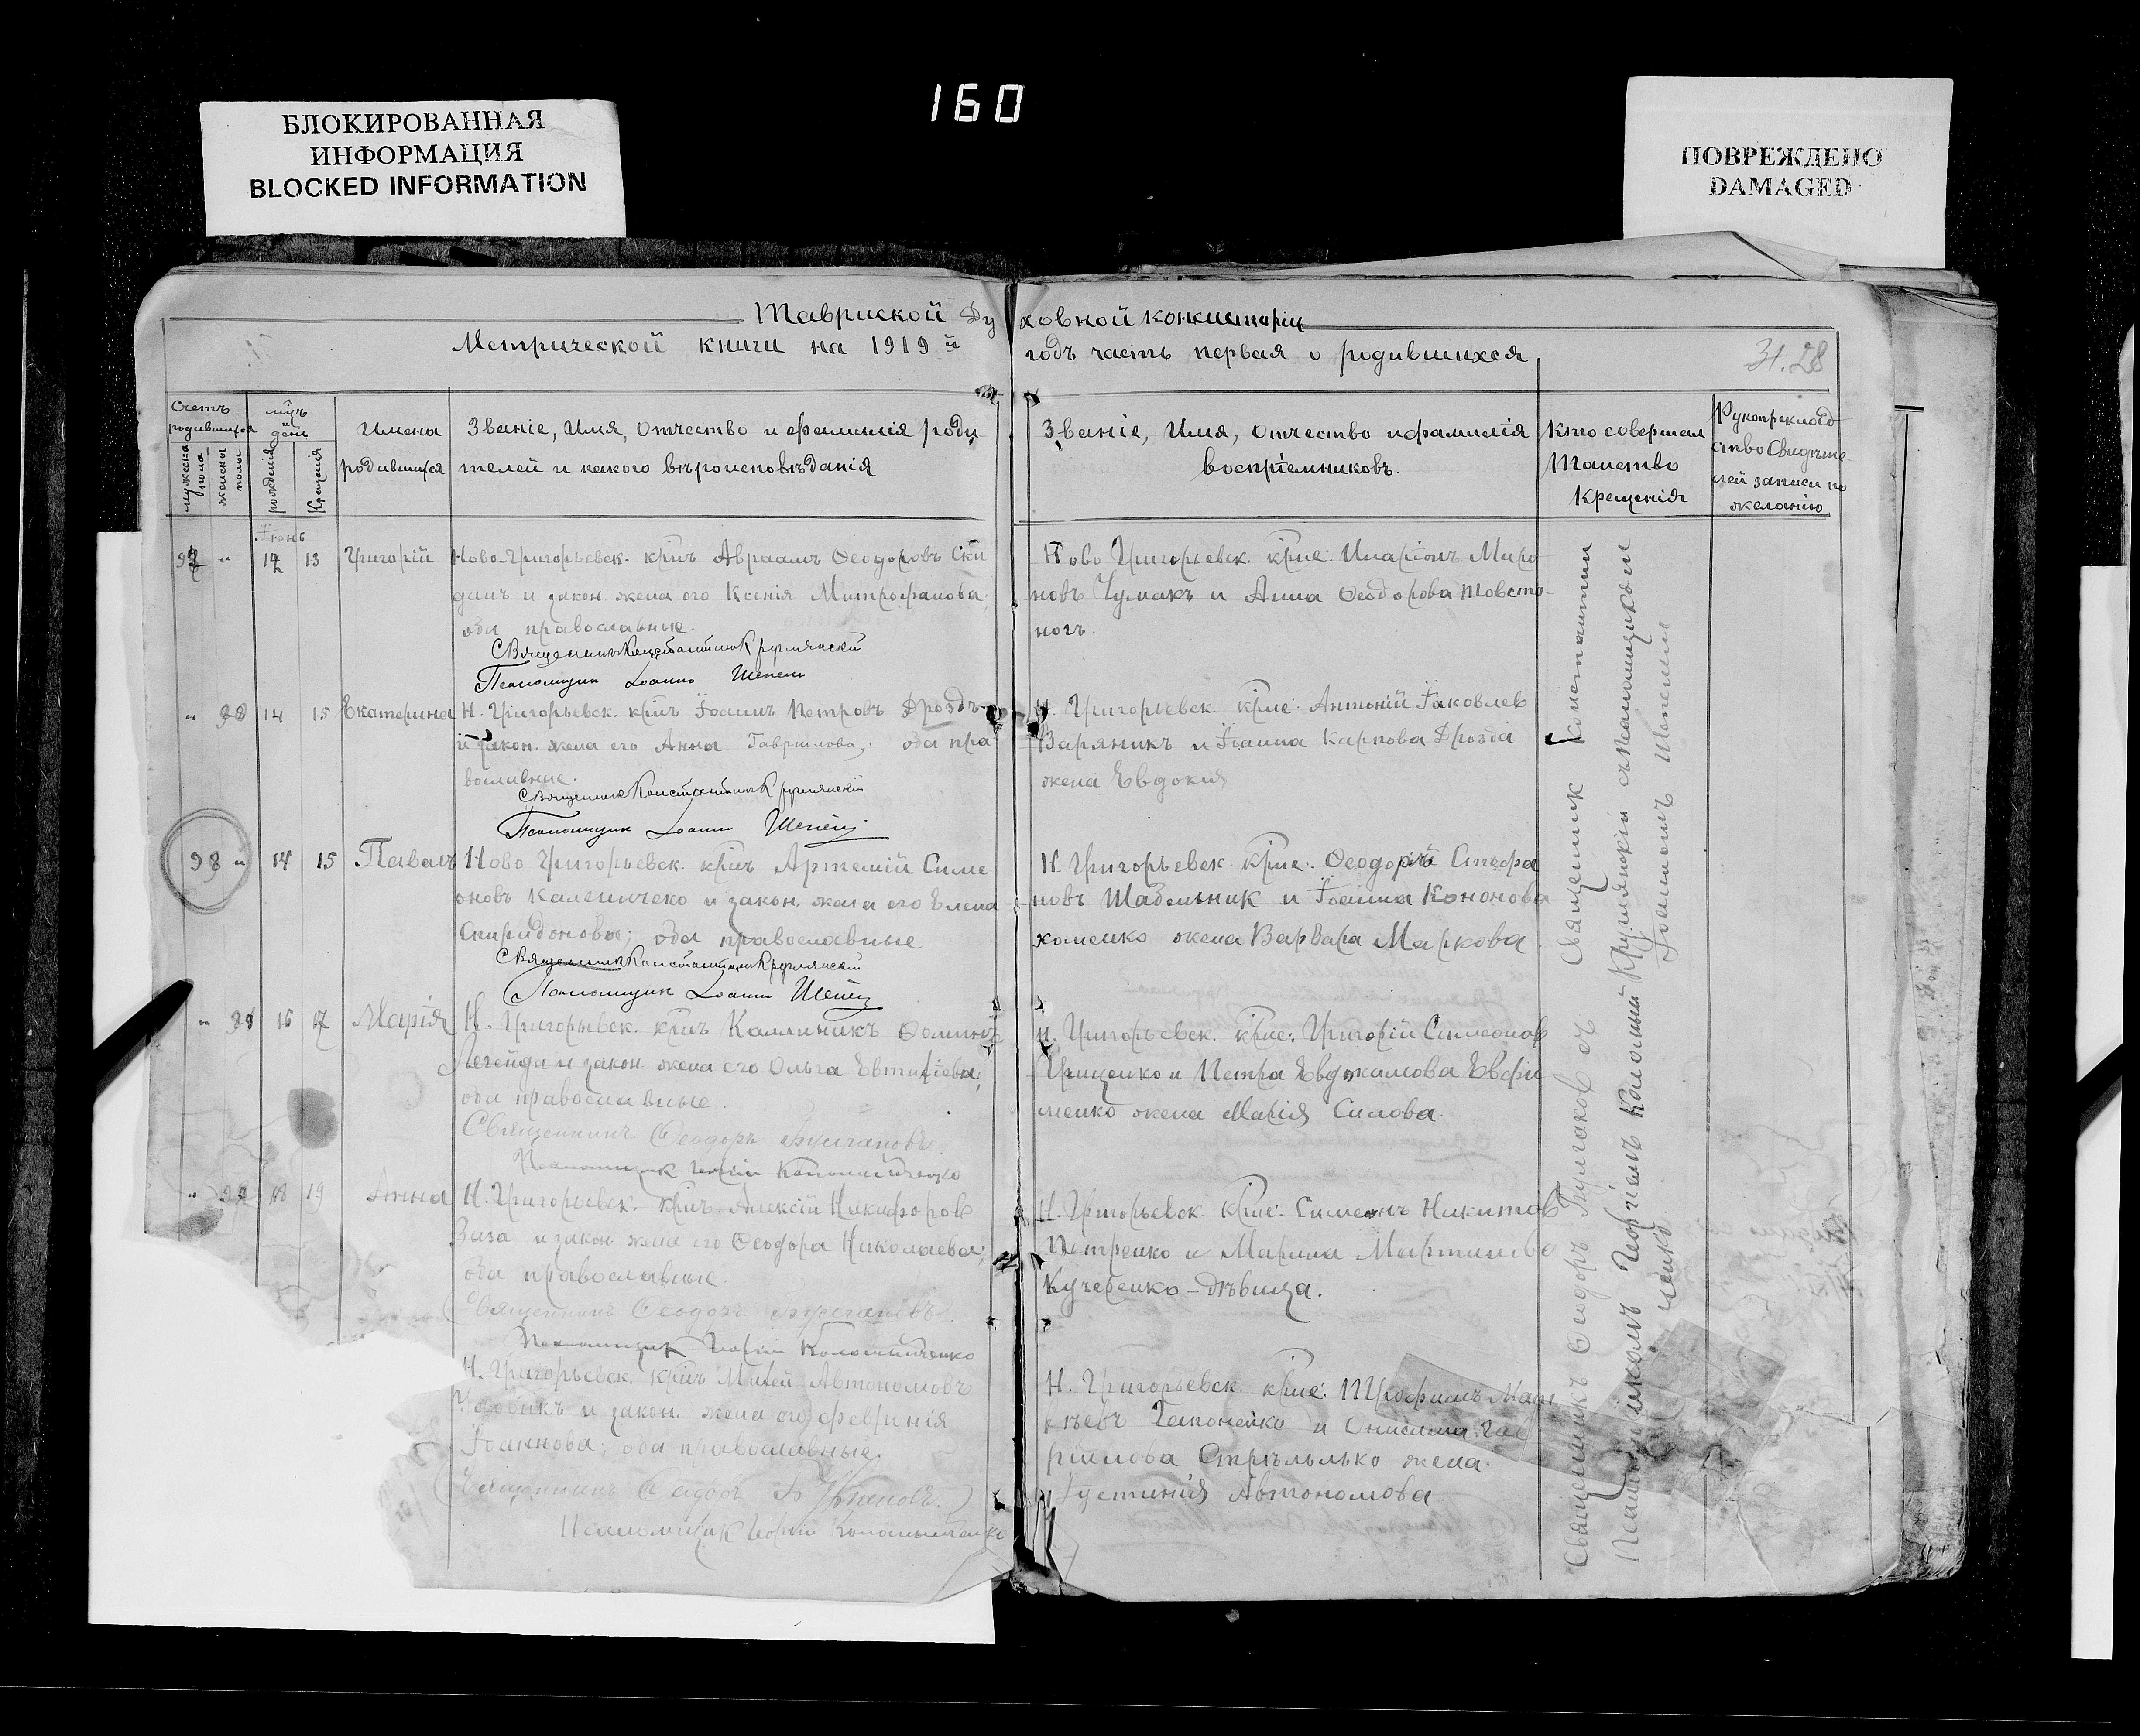 160
БЛОКИРОВАННАЯ
ИНФОРМАЦИЯ
BLOCKED INFORMATION
ПОВРЕЖДЕНО
DAMAGED
Тавриской Духовной Консисторіи
Метрической книги на 1919 й годъ часть первая о родившихся
31. 28
Счетъ родившихся
мужеска пола
женска полы
мц҃ъ и день
рожденія
Крещенія
Имена
родившихся
Званіе, Имя, Отчество и фамилія роди
телей и какого вѣроисповѣданія
Званіе, Имя, Отчество и фамилія
воспріемниковъ.
Кто совершал
Таинство
Крещенія
Рукоприкладст
во Свидѣте
лей записи по
желанію
Іюнь
97 " 12 13 Григорій
Ново-Григорьевск. кр҃нъ Авраамъ Ѳеодоровъ Ски
данъ и закон. жена его Ксенія Митрофанова;
оба православные.
Священникъ Константинъ Круглянскій
Псаломщик Іоаннъ Шепель
Ново Григорьевск. кр҃не: Иларіонъ Миро
новъ Чумакъ и Анна Ѳеодорова Товсто
ногъ.
" 14 15 Екатерина
Н. Григорьевск. кр҃нъ Іоаннъ Петровъ Дроздъ
и закон. жена его Анна Гаврилова; оба пра
вославные.
Священник Константинъ Круглянскій
Псаломщик Іоаннъ Шепель
Н. Григорьевск. кр҃не: Антоній Іаковлев
Варяникъ и Іоанна Карпова Дрозда
жена Евдокия
98 " 14 15 Павелъ
Ново Григорьевск. кр҃нъ Артемій Симе
оновъ Калениченко и закон. жена его Елена
Спиридонова; оба православные
Священник Константинъ Круглянскій
Псаломщик Іоаннъ Шепель
Н. Григорьевск кр҃не: Ѳеодоръ Стефа
новъ Шабельник и Іоанна Кононова
хоменко жена Варвара Маркова.
" 16 17 Марія
Н. Григорьевск. кр҃нъ Каллиникъ Ѳоминъ
Легейда и закон. жена его Ольга Евтихіева;
оба православные.
Священникъ Ѳеодоръ Булгаковъ
Псаломщик Георгій Коломийченко
Н. Григорьевск. кр҃не: Григорій Симеонов
Грищенко и Петра Евдокимова Евфи
менко жена Марія Силова.
" 18 19 Анна
Н. Григорьевск. кр҃нъ Алексій Никифоров
Заза и закон. жена его Ѳеодора Николаева;
оба православные.
Священникъ Ѳеодоръ Булгаковъ
Псаломщик Георгій Коломийченко
Н. Григорьевск кр҃не: Симеонъ Никитов
Петренко и Марина Мартинова
Кучеренко-дѣвица.
Н. Григорьевск. кр҃нъ Михей Автономовъ
и закон. жена его февронія
Іоаннова; оба православные.
Священникъ Ѳеодоръ Булгаковъ
Псаломщик Георгій Коломийченко
Н. Григорьевск. кр҃не: Трофимъ Мат
вѣевъ Гапоненко и Онисима Гав
риилова Стрѣлько жена
Іустинія Автономова
Священник Константин
Круглянскій съ псаломщиком
Іоанномъ Шепелемъ
Священникъ Ѳеодоръ Булгаков съ
Псаломщикомъ Георгіемъ Коломий
ченко